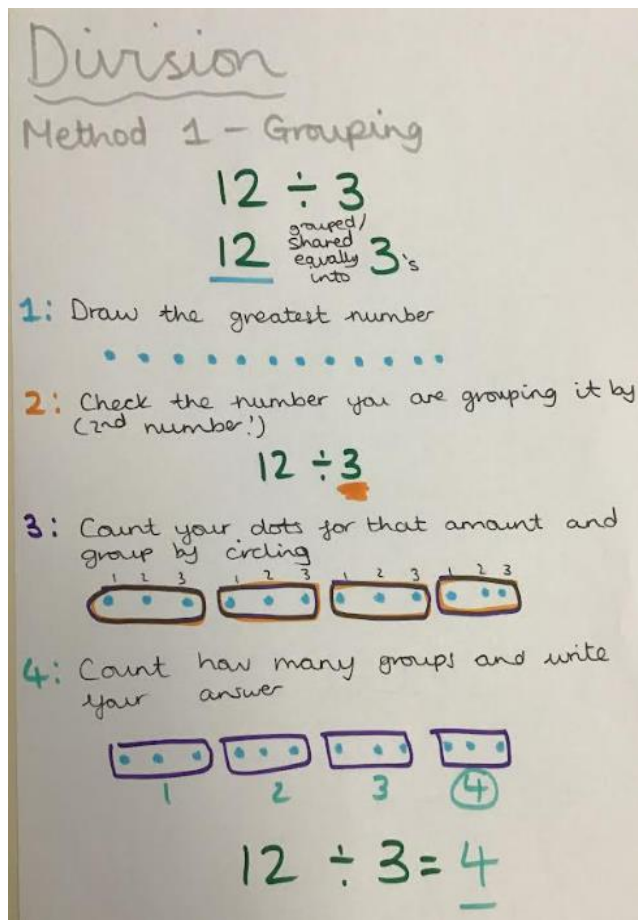 Division
Method 1 - Grouping
12 ÷ 3
12 grouped/ shared equally into 3's
1: Draw the greatest number
2: Check the number you are grouping it by
(2nd number!)
12 ÷ 3
3: Count your dots for that amount and
group by circling
1 2 3 1 2 3 1 2 3 1 2 3
4: Count how many groups and write
your answer
1 2 3 4
12 ÷ 3 = 4